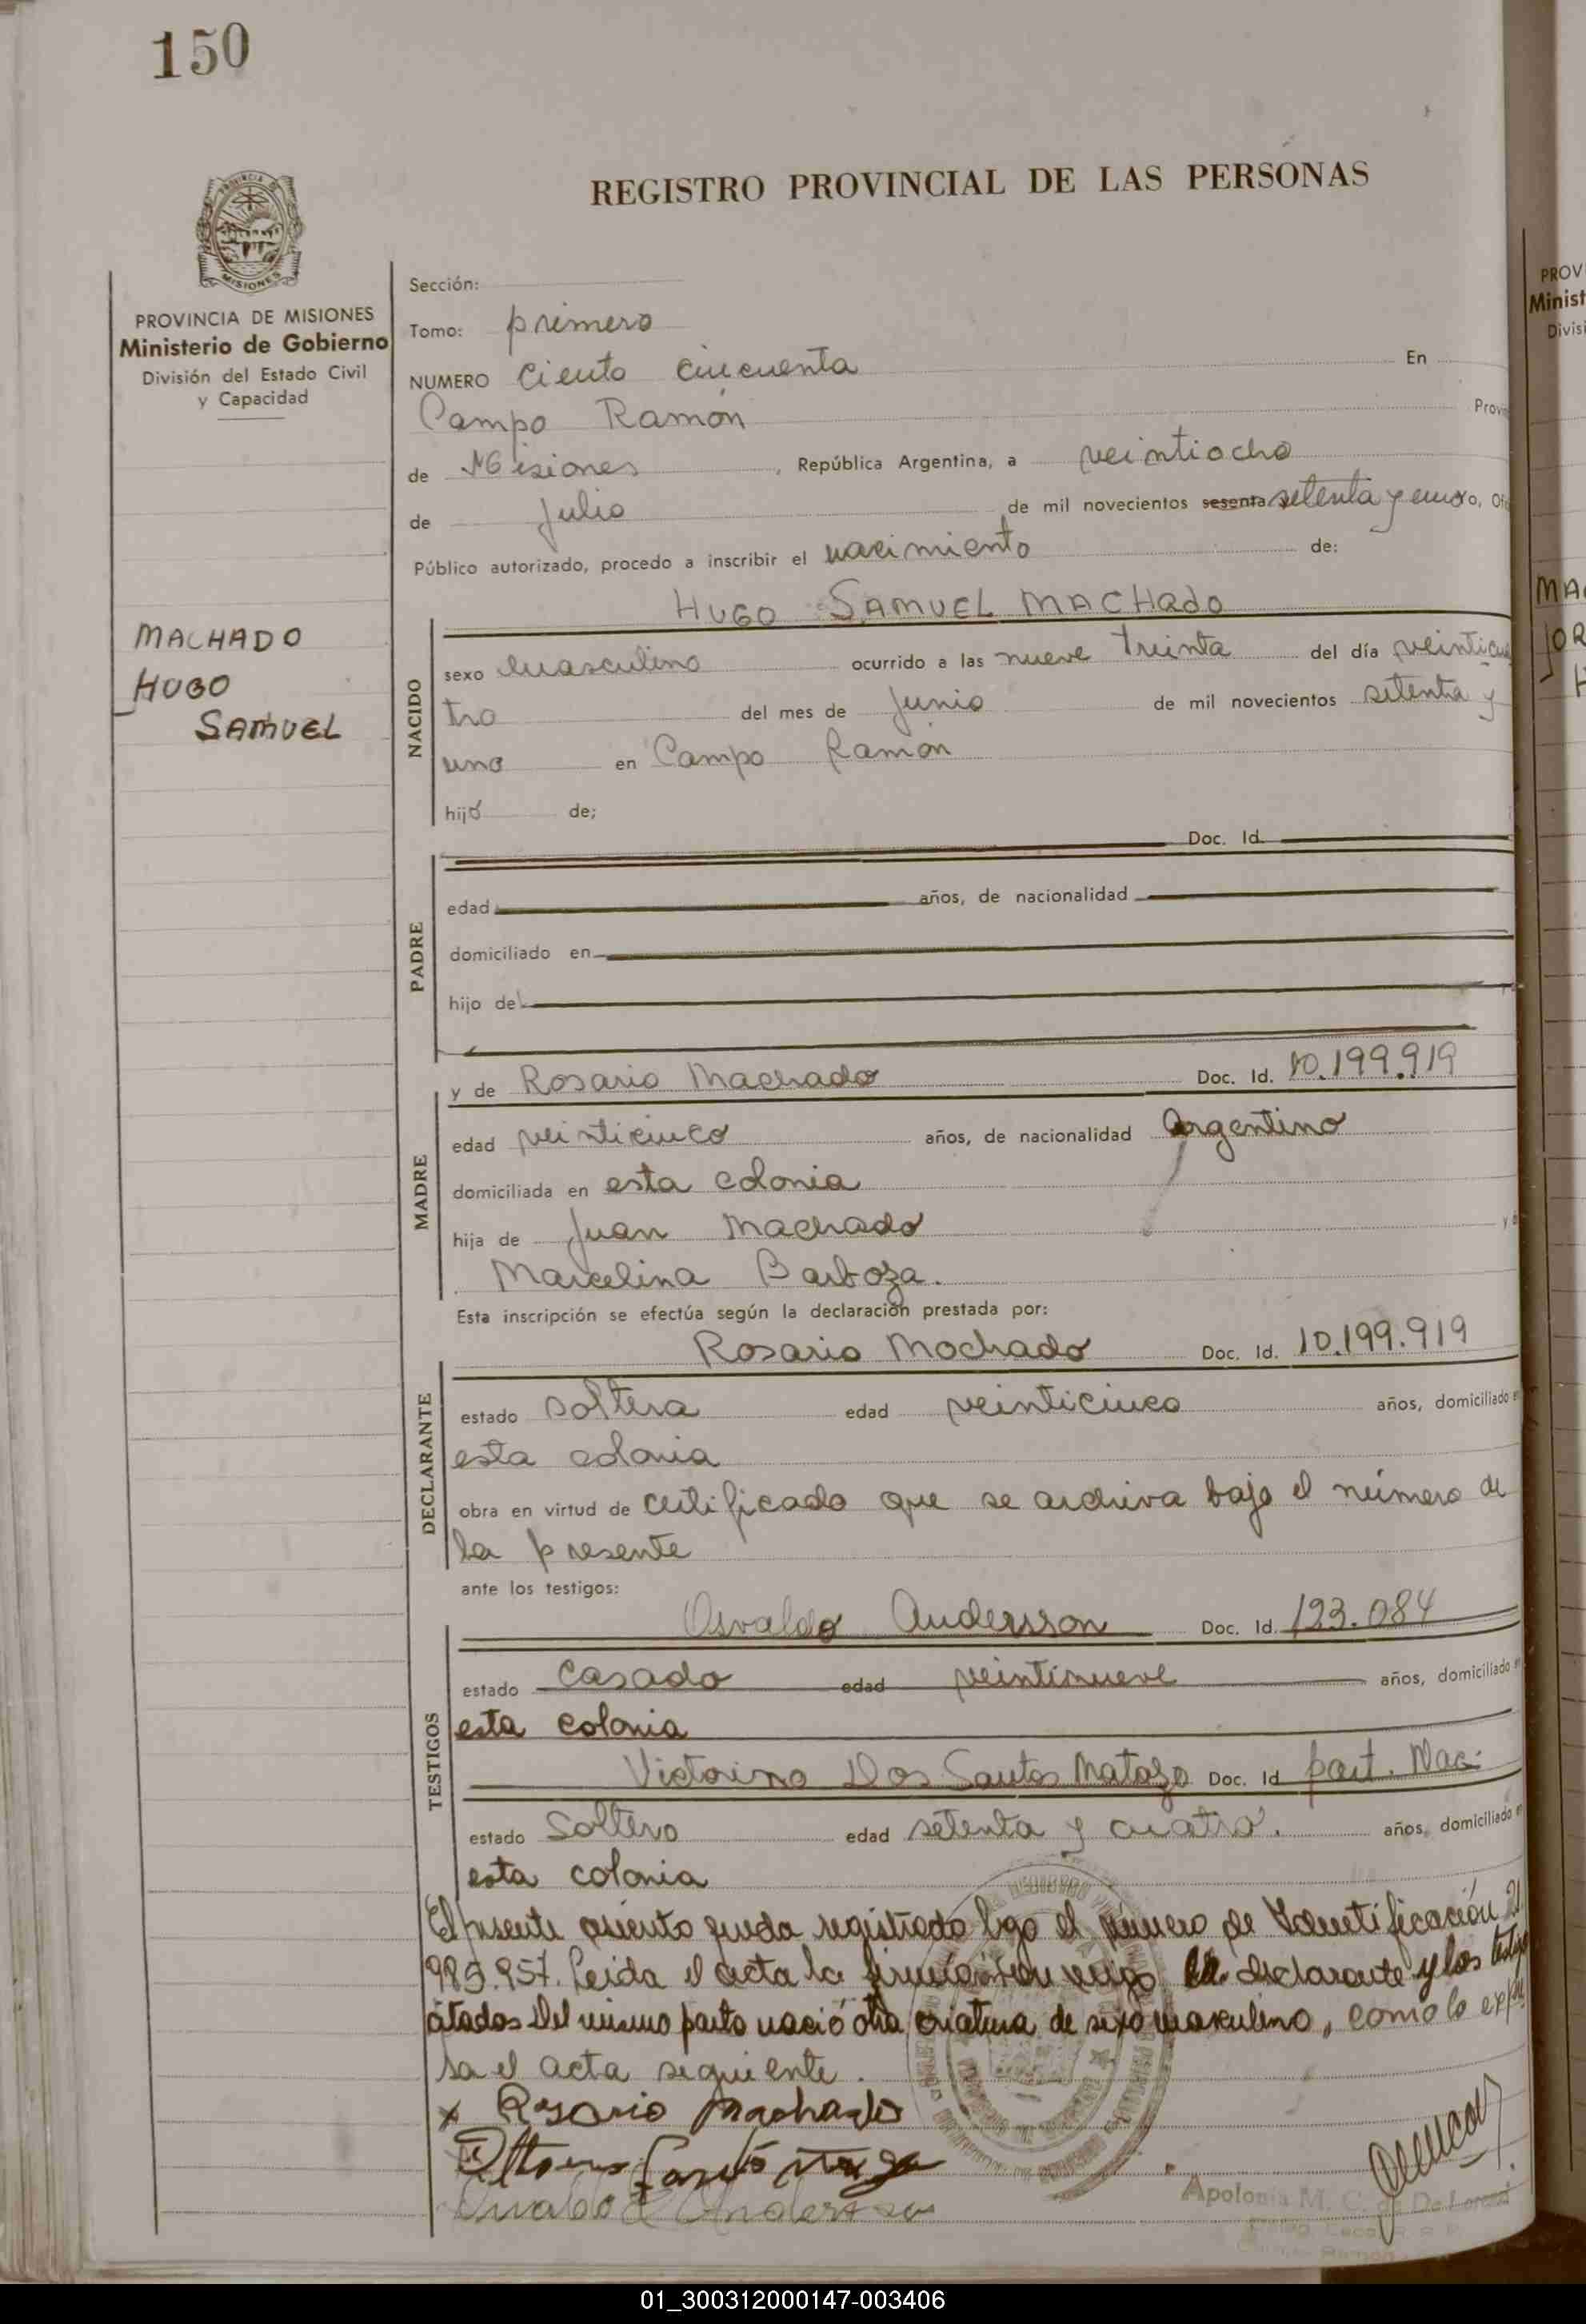 150
REGISTRO PROVINCIAL DE LAS PERSONAS
PROVINCIA DE MISIONES
Ministerio de Gobierno
División del Estado Civil
y Capacidad
MACHADO
HUGO
SAMUEL
Sección:
Tomo: primero
NUMERO Ciento cincuenta En
Campo Ramón Provin
de Misiones, República Argentina, a veintiocho
de Julio de mil novecientos sesenta setenta y
Público autorizado, procedo a inscribir el nacimiento de:
HUGO SAMUEL MACHADO
NACIDO
sexo masculino ocurrido a las nueve treinta del día veinticua
tro del mes de Junio de mil novecientos setenta y
uno en Campo Ramón
hijo de;
PADRE
Doc. Id.
edad años, de nacionalidad
domiciliado en
hijo de
MADRE
y de Rosario Machado Doc. Id. 10.199.919
edad veinticinco años, de nacionalidad Argentino
domiciliada en esta colonia
hija de Juan Machado y d
Marcelina Barboza.
Esta inscripción se efectúa según la declaración prestada por:
DECLARANTE
Rosario Machado Doc. Id. 10.199.919
estado soltera edad veinticinco años, domiciliado
esta colonia
obra en virtud de certificado que se archiva bajo el número de
la presente
ante los testigos:
TESTIGOS
Osvaldo Andersson Doc. Id. 123.084
estado Casado edad veintinueve años, domiciliado
esta colonia
Victorino Dos Santos Matozo Doc. Id part. Nac.
estado Soltero edad setenta y cuatro. años, domiciliado
esta colonia
El presente asiento queda registrado bajo el número de Identificación 21
985.957. Leida el acta la declarante y los testigo
citados Del mismo parto nació otra criatura de sexo masculino, como lo expre
sa el acta siguiente.
x Rosario Machado
Apolonia M. C. de De
PROV
Minist
Divisi
MAC
JOR
H
01_300312000147-003406